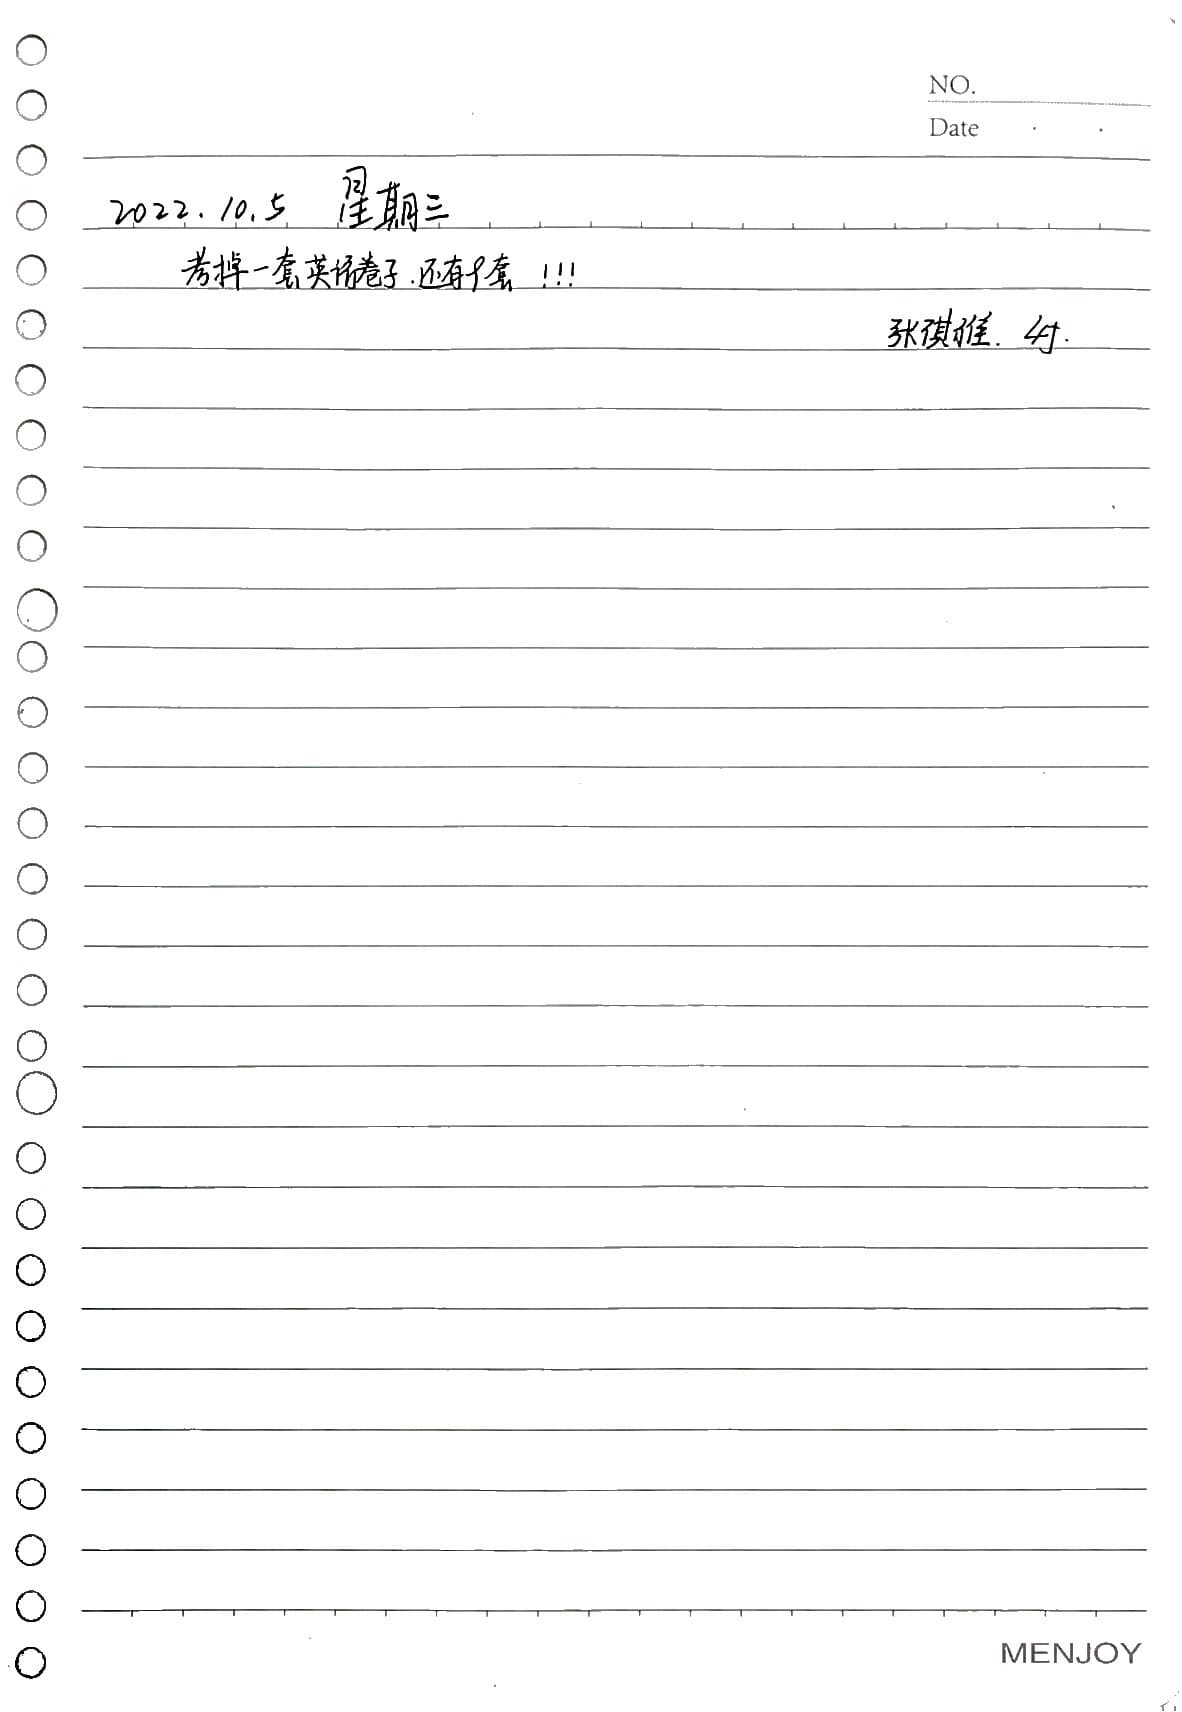 NO.
Date
2022.10.5 星期三
考掉一套英语卷子.还有9套 !!!
张祺雅. 付.
MENJOY